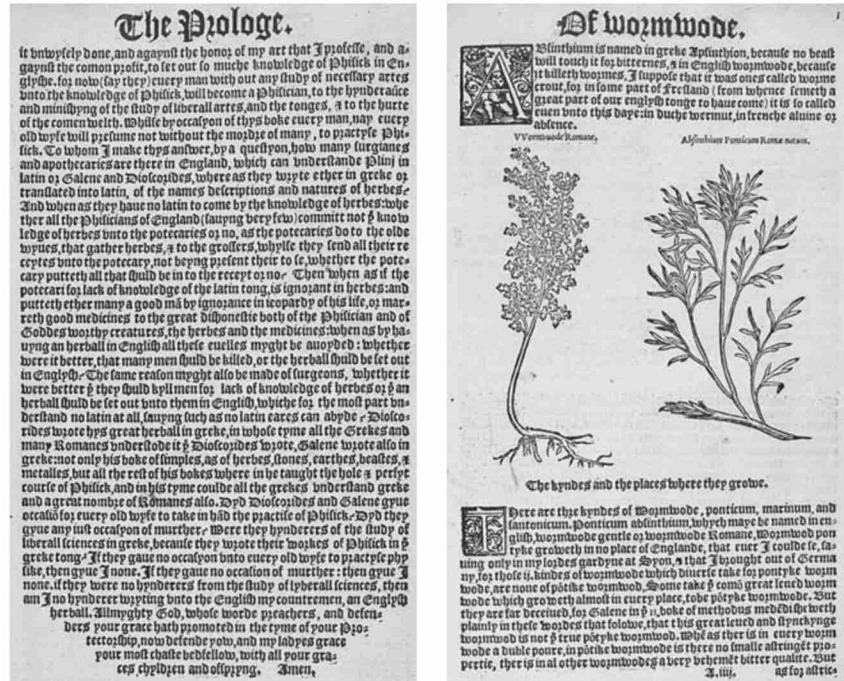 The Prologe.
it vnwysely done, and agaynst the honor of my art that I professe, and a-
gaynst the comon profit, to set out so muche knowledge of Phisick in En-
glyshe. for now (say they) euery man with out any study of necessary artes
vnto the knowledge of Phisick, will become a Physician, to the hynderaūce
and minishyng of the study of liberall artes, and the tonges, & to the hurte
of the comen welth. Whilse by occasyon of thys boke euery man, nay euery
old wyfe will presume not without the mordre of many, to practyse Phi-
sick. To whom I make thys answer, by a questyon, how many surgianes
and apothecaries are there in England, which can vnderstande Plinj in
latin or Galene and Dioscorides, where as they wryte ether in greke or
translated into latin, of the names descriptions and natures of herbes?
And when as they haue no latin to come by the knowledge of herbes: whe
ther all the Phisicians of England (sauyng very few) committ not ẏ know
ledge of herbes vnto the potecaries or no, as the potecaries do to the olde
wyues, that gather herbes, & to the grossers, whylse they send all their re
ceytes vnto the potecary, not beyng present their to se, whether the pote-
cary putteth all that shuld be in to the receyt or no? Then when as if the
potecari for lack of knowledge of the latin tong, is ignorant in herbes: and
putteth ether many a good mā by ignorance in ieopardy of his life, or mar-
reth good medicines to the great dishonestie both of the Phisician and of
Goddes worthy creatures, the herbes and the medicines: when as by ha-
uyng an herball in English all these euelles myght be auoyded: whether
were it better, that many men shuld be killed, or the herball shuld be set out
in Englysh? The same reason myght also be made of surgeons, whether it
were better ẏ they shuld kyll men for lack of knowledge of herbes or ẏ an
herball shuld be set out vnto them in English, whiche for the most part vn-
derstand no latin at all, sauyng such as no latin eares can abyde? Diosco-
rides wrote hys great herball in greke, in whose tyme all the Grekes and
many Romanes vnderstode it ẏ Dioscorides wrote, Galene wrote also in
greke: not only his boke of simples, as of herbes, stones, earthes, beastes, &
metalles, but all the rest of his bokes where in he taught the hole & perfyt
course of Phisick, and in his tyme coulde all the grekes vnderstand greke
and a great nombre of Romanes also. Dyd Dioscorides and Galene gyue
occasiō for euery old wyfe to take in hād the practise of Phisick? Dyd they
gyue any iust occasyon of murther? Were they hynderers of the study of
liberall sciences in greke, because they wrote their workes of Phisick in ẏ
greke tong? If they gaue no occasyon vnto euery old wyfe to practyse phy
sike, then gyue I none. If they gaue no occasion of murther: then gyue I
none. if they were no hynderers from the study of lyberall sciences, then
am I no hynderer wryting vnto the English my countremen, an Englysh
herball. Allmyghty God, whose worde preachers, and defen-
ders your grace hath promoted in the tyme of your Pro-
tectorship, now defende yow, and my ladyes grace
your most chaste bedfellow, with all your gra-
ces chyldren and ofspryng. Amen.
Of wormwode.
ABsinthium is named in greke Apsinthion, because no beast
will touch it for bitternes, & in English wormwode, because
it killeth wormes, I suppose that it was ones called worme
crout, for in some part of Freslād (from whence semeth a
great part of our englysh tonge to haue come) it is so called
euen vnto this daye: in duche wermut, in frenche aluine or
absence.
VVormwode Romane.
Absinthium Ponticum Romæ natum.
The kyndes and the places where they growe.
THere are thre kyndes of Wormwode, ponticum, marinum, and
santonicum. Ponticum absinthium, whych maye be named in en-
glish, wormwode gentle or wormwode Romane, Wormwod pon
tyke groweth in no place of Englande, that euer I coulde se, sa-
uing only in my lordes gardyne at Syon, & that I brought out of Germa
ny, for those ij. kindes of wormwode which diuerse take for pontyke worm
wode, are none of pōtike wormwod, Some take ẏ comō great leued worm
wode which groweth almost in euery place, to be pōtyke wormwode. But
they are far deceiued, for Galene in ẏ 11. boke of methodus medēdi sheweth
plainly in these wordes that folowe, that this great leued and stynckynge
wormwod is not ẏ true pōtyke wormwod. Whē as ther is in euery worm
wode a duble poure, in pōtike wormwode is there no smalle astringēt pro-
pertie, ther is in al other wormwodes a very behemēt bitter qualite. But
A.iiij. as for astric-